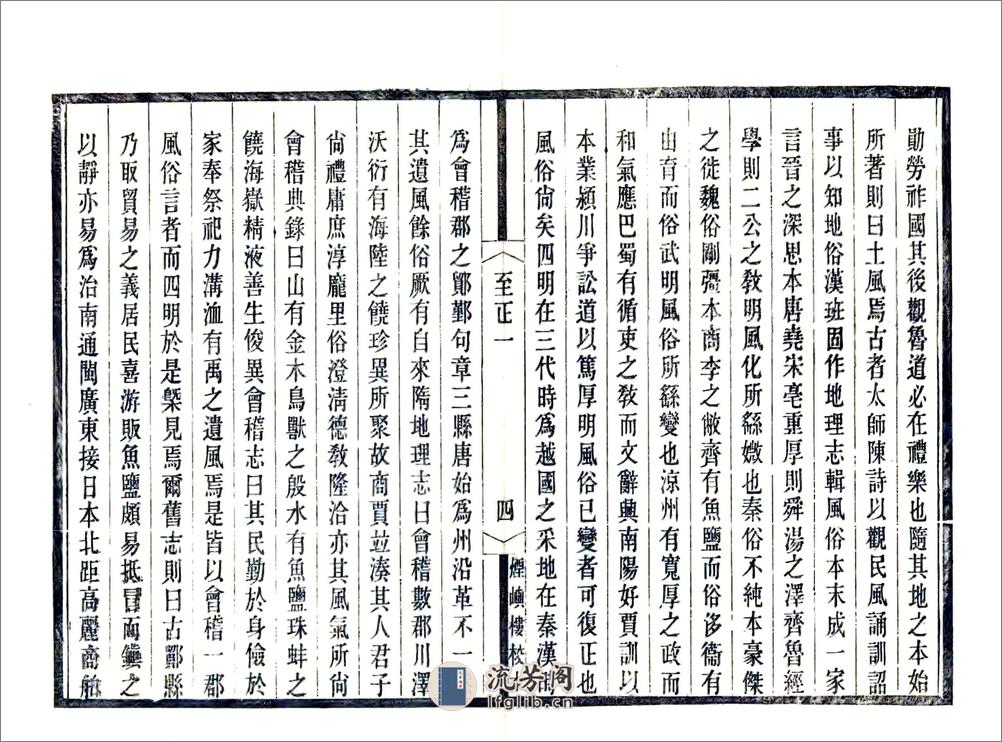 勛勞祚國其後觀魯道必在禮樂也隨其地之本始
所著則曰土風焉古者太師陳詩以觀民風誦訓詔
事以知地俗漢班固作地理志輯風俗本末成一家
言晉之深思本唐堯宋亳重厚則舜湯之澤齊魯經
學則二公之敎明風化所繇媺也秦俗不純本豪傑
之徙魏俗剛彊本商李之敝齊有魚鹽而俗侈衞有
由育而俗武明風俗所繇變也涼州有寬厚之政而
和氣應巴蜀有循吏之敎而文辭興南陽好賈訓以
本業潁川爭訟道以篤厚明風俗已變者可復正也
風俗尙矣四明在三代時爲越國之采地在秦漢
至正一
四
煙嶼樓校
爲會稽郡之鄮鄞句章三縣唐始爲州沿革不一
其遺風餘俗厥有自來隋地理志曰會稽數郡川澤
沃衍有海陸之饒珍異所聚故商賈並湊其人君子
尙禮庸庶淳龐里俗澄淸德敎隆洽亦其風氣所尙
會稽典錄曰山有金木鳥獸之殷水有魚鹽珠蚌之
饒海嶽精液善生俊異會稽志曰其民勤於身儉於
家奉祭祀力溝洫有禹之遺風焉是皆以會稽一郡
風俗言者而四明於是槩見焉爾舊志則曰古鄮縣
乃取貿易之義居民喜游販魚鹽頗易抵冒而鎭之
以靜亦易爲治南通閩廣東接日本北距高麗商舶
流芳阁
lfglib.cn